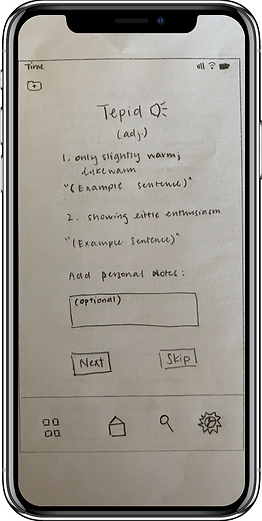 Time
Tepid
(adj.)
1. only slightly warm;
lukewarm
"(Example Sentence)"
2. showing little enthusiasm
"(Example Sentence)"
Add personal Notes:
(optional)
Next
Skip